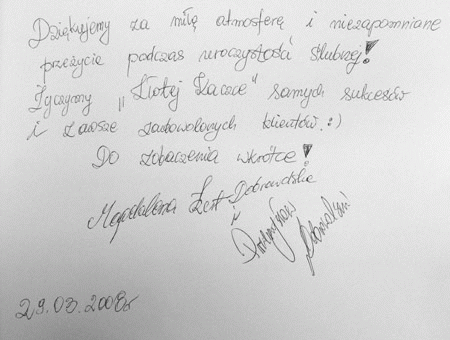 Dziękujemy za miłą atmosferę i niezapomniane
przeżycie podczas uroczystości ślubnej!
Życzymy „Złotej Kaczce" samych sukcesów
i zawsze zadowolonych klientów :)
Do zobaczenia wkrótce!
Magdalena Dobrowolska
i
29.03.2008r